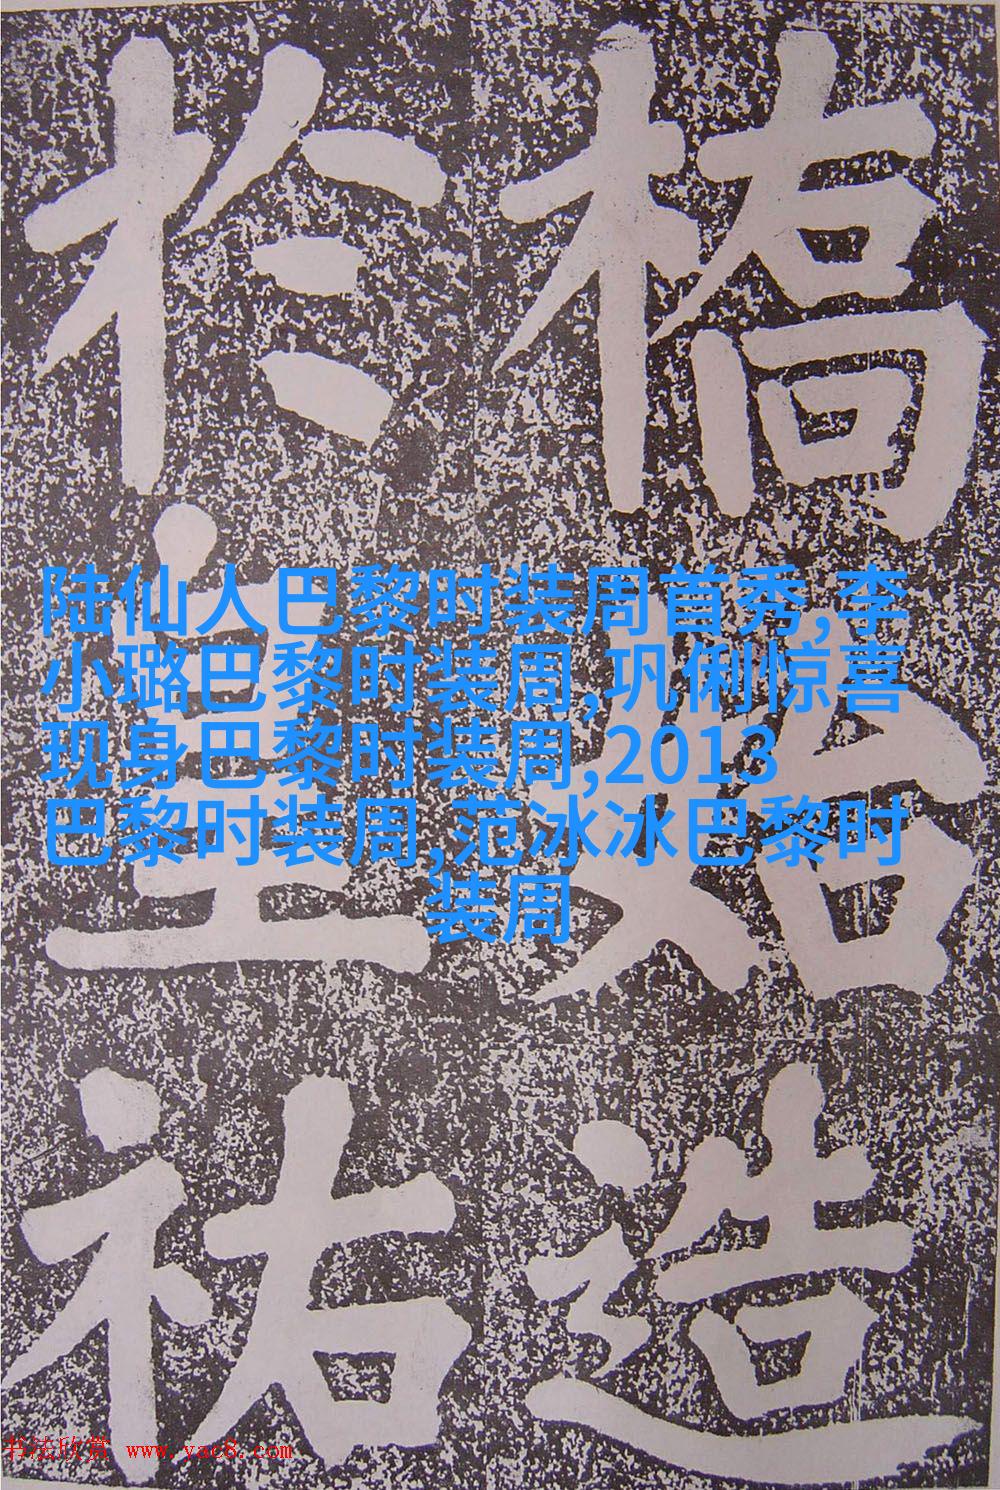 橋始造
於皇祐
陆仙人巴黎时装周首秀,李
小璐巴黎时装周,巩俐惊喜
现身巴黎时装周,2013
巴黎时装周,范冰冰巴黎时
装周
书法欣赏 www.yac8.com